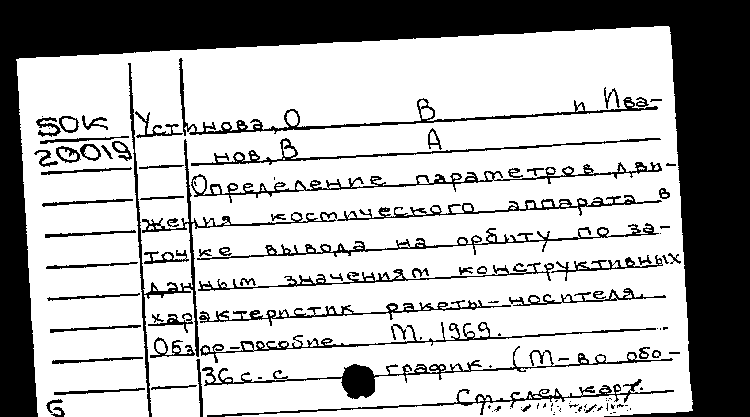 50К Устинова, О В и Ива-
20019 нов, В А
Определение параметров дви-
жения космического аппарата в
точке вывода на орбиту по за-
данным значениям конструктивных
характеристик ракеты-носителя.
Обзор-пособие. М., 1969.
36 с. с график. (М-во обо-
См. след. карт.
6